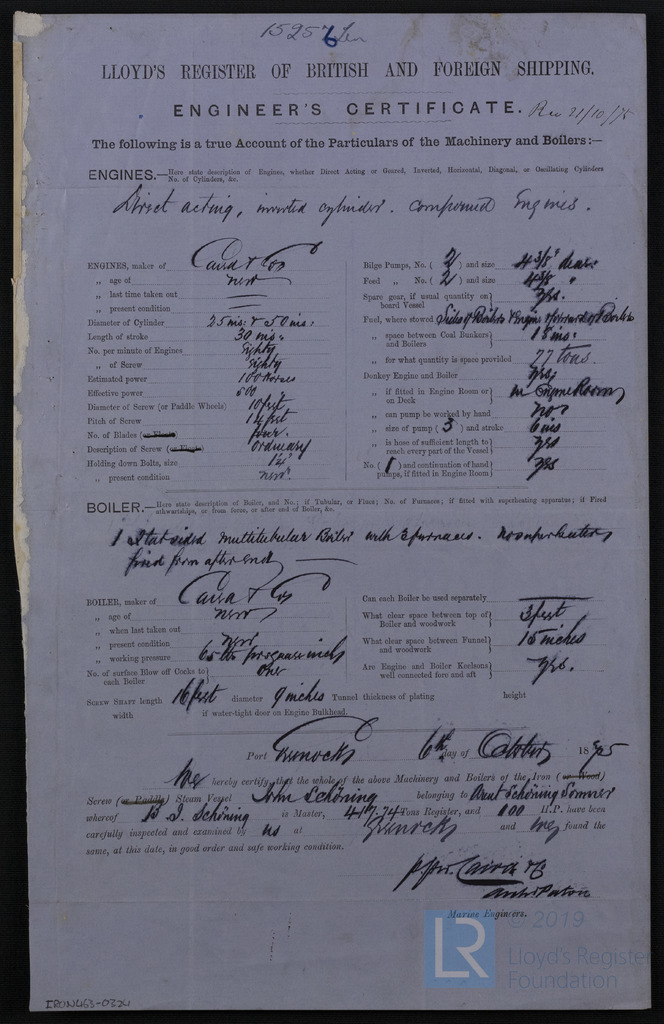 15257
LLOYD'S REGISTER OF BRITISH AND FOREIGN SHIPPING.
ENGINEER'S CERTIFICATE. Rec 21/10/75
The following is a true Account of the Particulars of the Machinery and Boilers:—
ENGINES.—Here state description of Engines, whether Direct Acting or Geared, Inverted, Horizontal, Diagonal, or Oscillating Cylinders
No. of Cylinders, &c.
Direct acting, inverted cylinder. compound Engines.
ENGINES, maker of Caird & Coy
„ age of new
„ last time taken out
„ present condition
Diameter of Cylinder 25 ins: & 50 ins:
Length of stroke 30 ins.
No. per minute of Engines Eighty
„ of Screw Eighty
Estimated power 100 horses
Effective power 500
Diameter of Screw (or Paddle Wheels) 10 feet
Pitch of Screw 14 feet
No. of Blades (or Floats) four.
Description of Screw (or Floats) Ordinary
Holding down Bolts, size 1¼"
„ present condition new.
Bilge Pumps, No. ( 2 ) and size 4 3/8" diar.
Feed „ No. ( 2 ) and size 4 3/8
Spare gear, if usual quantity on board Vessel Yes.
Fuel, where stowed Sides of Boiler & Engine & forward of Boiler
„ space between Coal Bunkers and Boilers 18 ins:
„ for what quantity is space provided 77 tons.
Donkey Engine and Boiler Yes,
„ if fitted in Engine Room or on Deck in Engine Room
„ can pump be worked by hand No
„ size of pump ( 3 ) and stroke 6 ins
„ is hose of sufficient length to reach every part of the Vessel Yes
No. ( 1 ) and continuation of hand pumps, if fitted in Engine Room Yes
BOILER.—Here state description of Boiler, and No.; if Tubular, or Flues; No. of Furnaces; if fitted with superheating apparatus; if Fired
athwartships, or from fore, or after end of Boiler, &c.
1 Flat sided multitubular Boiler with 3 furnaces. No superheater,
fired from after end
BOILER, maker of Caird & Coy
„ age of new
„ when last taken out
„ present condition New
„ working pressure 65 lbs per square inch
No. of surface Blow off Cocks to each Boiler One
Can each Boiler be used separately
What clear space between top of Boiler and woodwork 3 feet
What clear space between Funnel and woodwork 15 inches
Are Engine and Boiler Keelsons well connected fore and aft Yes.
SCREW SHAFT length 16 feet diameter 9 inches Tunnel thickness of plating height
width if water-tight door on Engine Bulkhead.
Port Greenock 6th day of October 1875
We hereby certify, that the whole of the above Machinery and Boilers of the Iron (or Wood)
Screw (or Paddle) Steam Vessel John Schöning belonging to Aust Schöning Sommer
whereof B. J. Schöning is Master, 417.74 Tons Register, and 100 H.P. have been
carefully inspected and examined by us at Greenock and we found the
same, at this date, in good order and safe working condition.
p. pro. Caird & Co
Archd Paton
Marine Engineers.
LR
© 2019
Lloyd's Register
Foundation
IRON463-0324